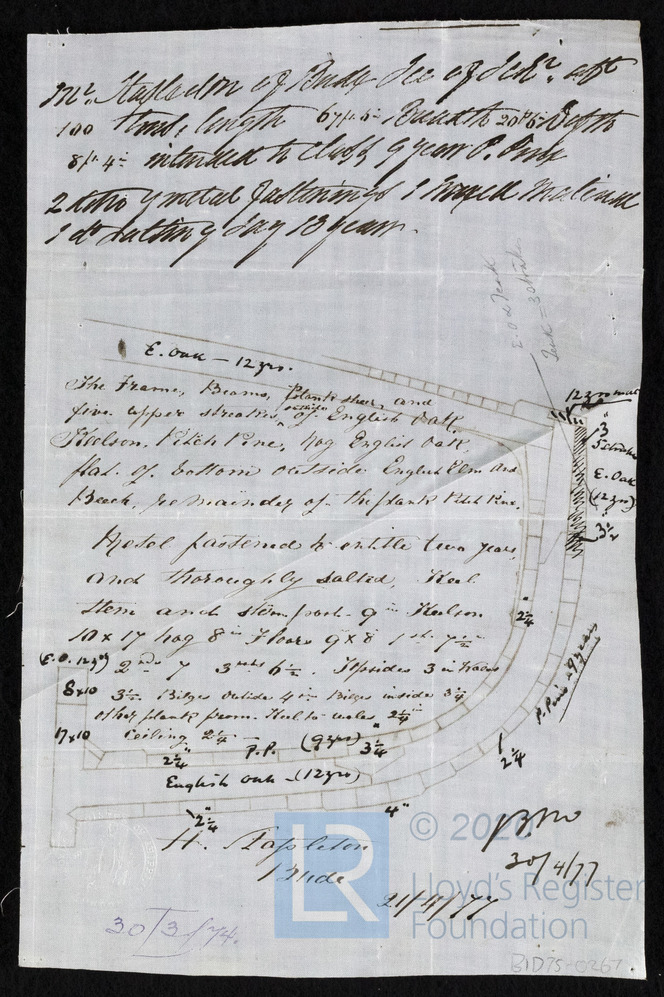 Mr. Stapleton of Bude Sec of Sch.r abt
100 Tons, length 67ft 5in Breadth 20ft 6in Depth
8ft 4in intended to class 9 year P. Pine
2 ditto y metal fastenings 1 mixed material
1 do salting say 13 years.
E. Oak — 12 yrs.
The Frame, Beams, plank sheer, and
five upper streakes, outside, of English Oak,
Keelson, Pitch Pine, hog English Oak,
flat of bottom outside English Elm and
Beech, remainder of the plank Pitch Pine.
Metal fastened to entitle two years,
and thoroughly salted, Keel
Stem and sternpost 9 in Keelson
10 x 17 hog 8 in Floors 9 x 8 1st 7 1/2
2nds 7 3rds 6 1/2. Topsides 3 in Wales
3 1/2. Bilges outside 4 in Bilges inside 3 1/4
other plank from Keel to wales 2 1/4"
Ceiling 2 1/4" —
E. O & Teak
12 yrs mat
3"
5 strakes
E. Oak
(12 yrs)
3 1/2"
2 1/4"
P. Pine = 9 years
(E. O. 12 yrs)
8 x 10
17 x 10
2 1/4"
P.P. (9 yrs)
3 1/4"
2 1/4"
English Oak — (12 yrs)
2 1/4"
4"
H. Stapleton
Bude
21/4/77
30/4/77
30/3/74.
© 2020
LR
Lloyd's Register
Foundation
BID75-0267